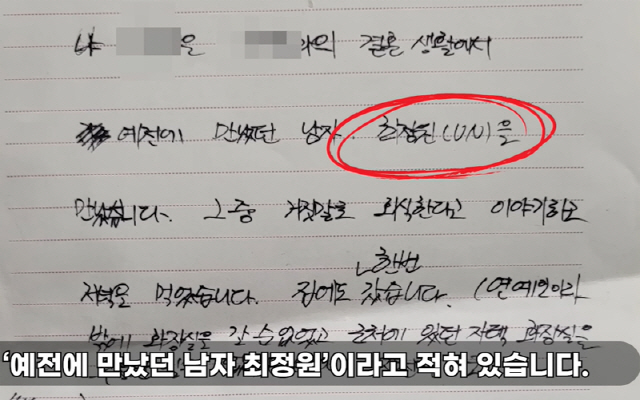 나 은 와의 결혼 생활에서
예전에 만났던 남자. 최정원(UN)을
만났습니다. 그중 거짓말로 회식한다고 이야기하고
한번
저녁을 먹었습니다. 집에도 갔습니다. (연예인이라
밖에 화장실을 갈 수 없었고 근처에 있던 자택 화장실을
‘예전에 만났던 남자 최정원’이라고 적혀 있습니다.